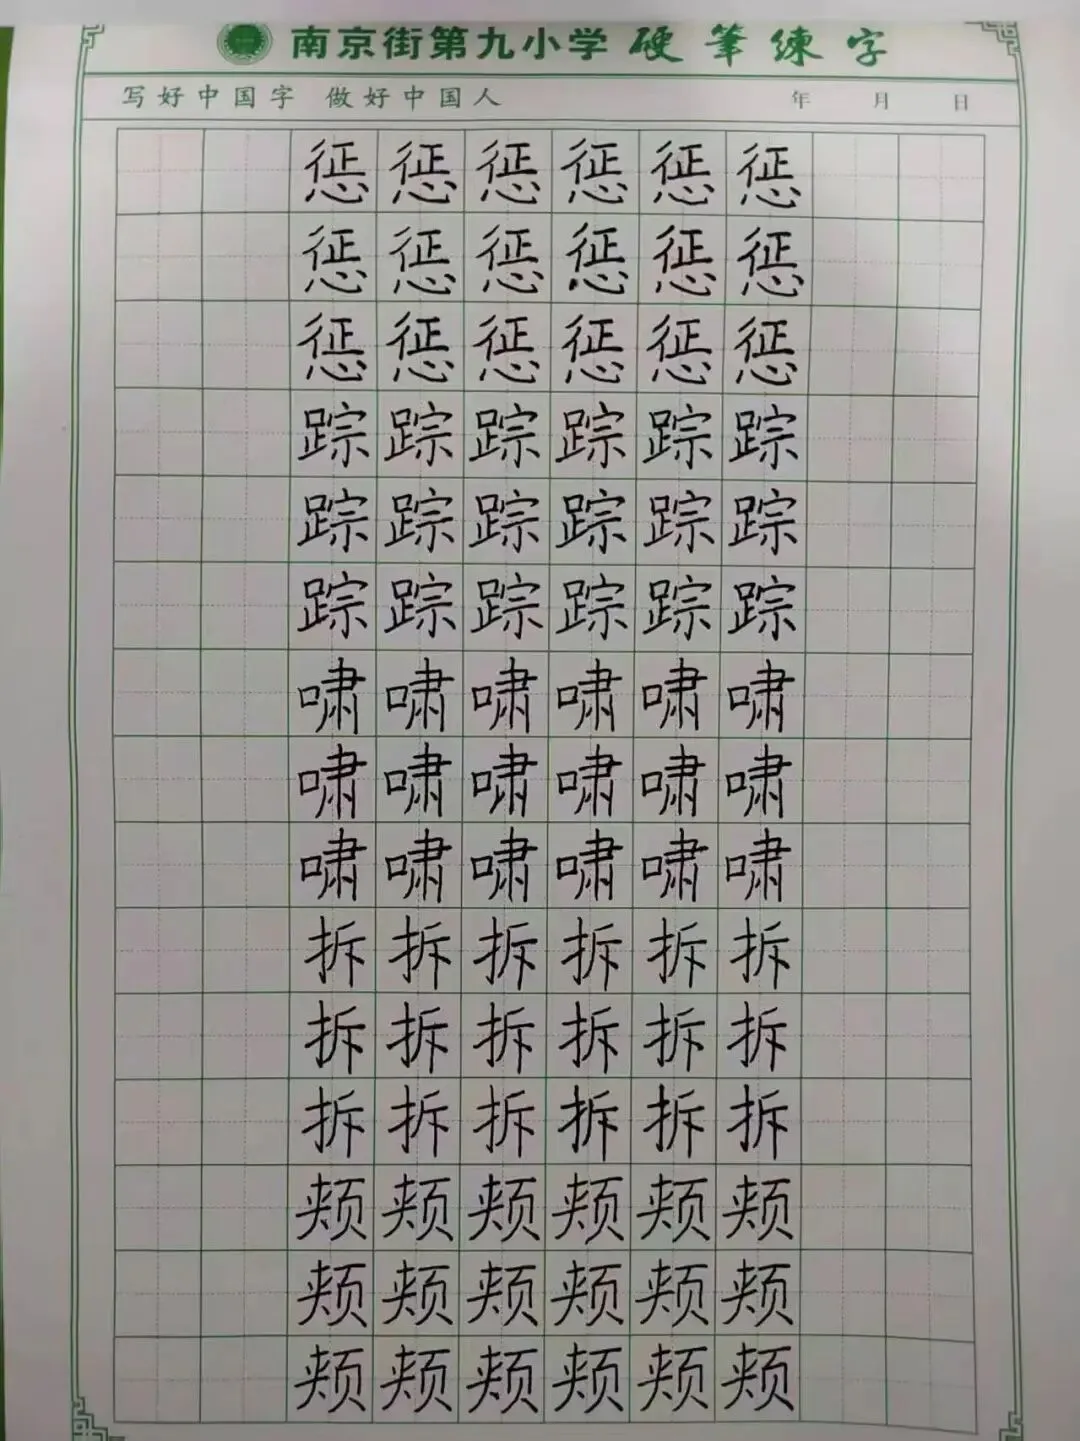 南京街第九小学 硬筆練字
写好中国字 做好中国人 年 月 日
惩惩惩惩惩惩
惩惩惩惩惩惩
惩惩惩惩惩惩
踪踪踪踪踪踪
踪踪踪踪踪踪
踪踪踪踪踪踪
啸啸啸啸啸啸
啸啸啸啸啸啸
啸啸啸啸啸啸
拆拆拆拆拆拆
拆拆拆拆拆拆
拆拆拆拆拆拆
颊颊颊颊颊颊
颊颊颊颊颊颊
颊颊颊颊颊颊